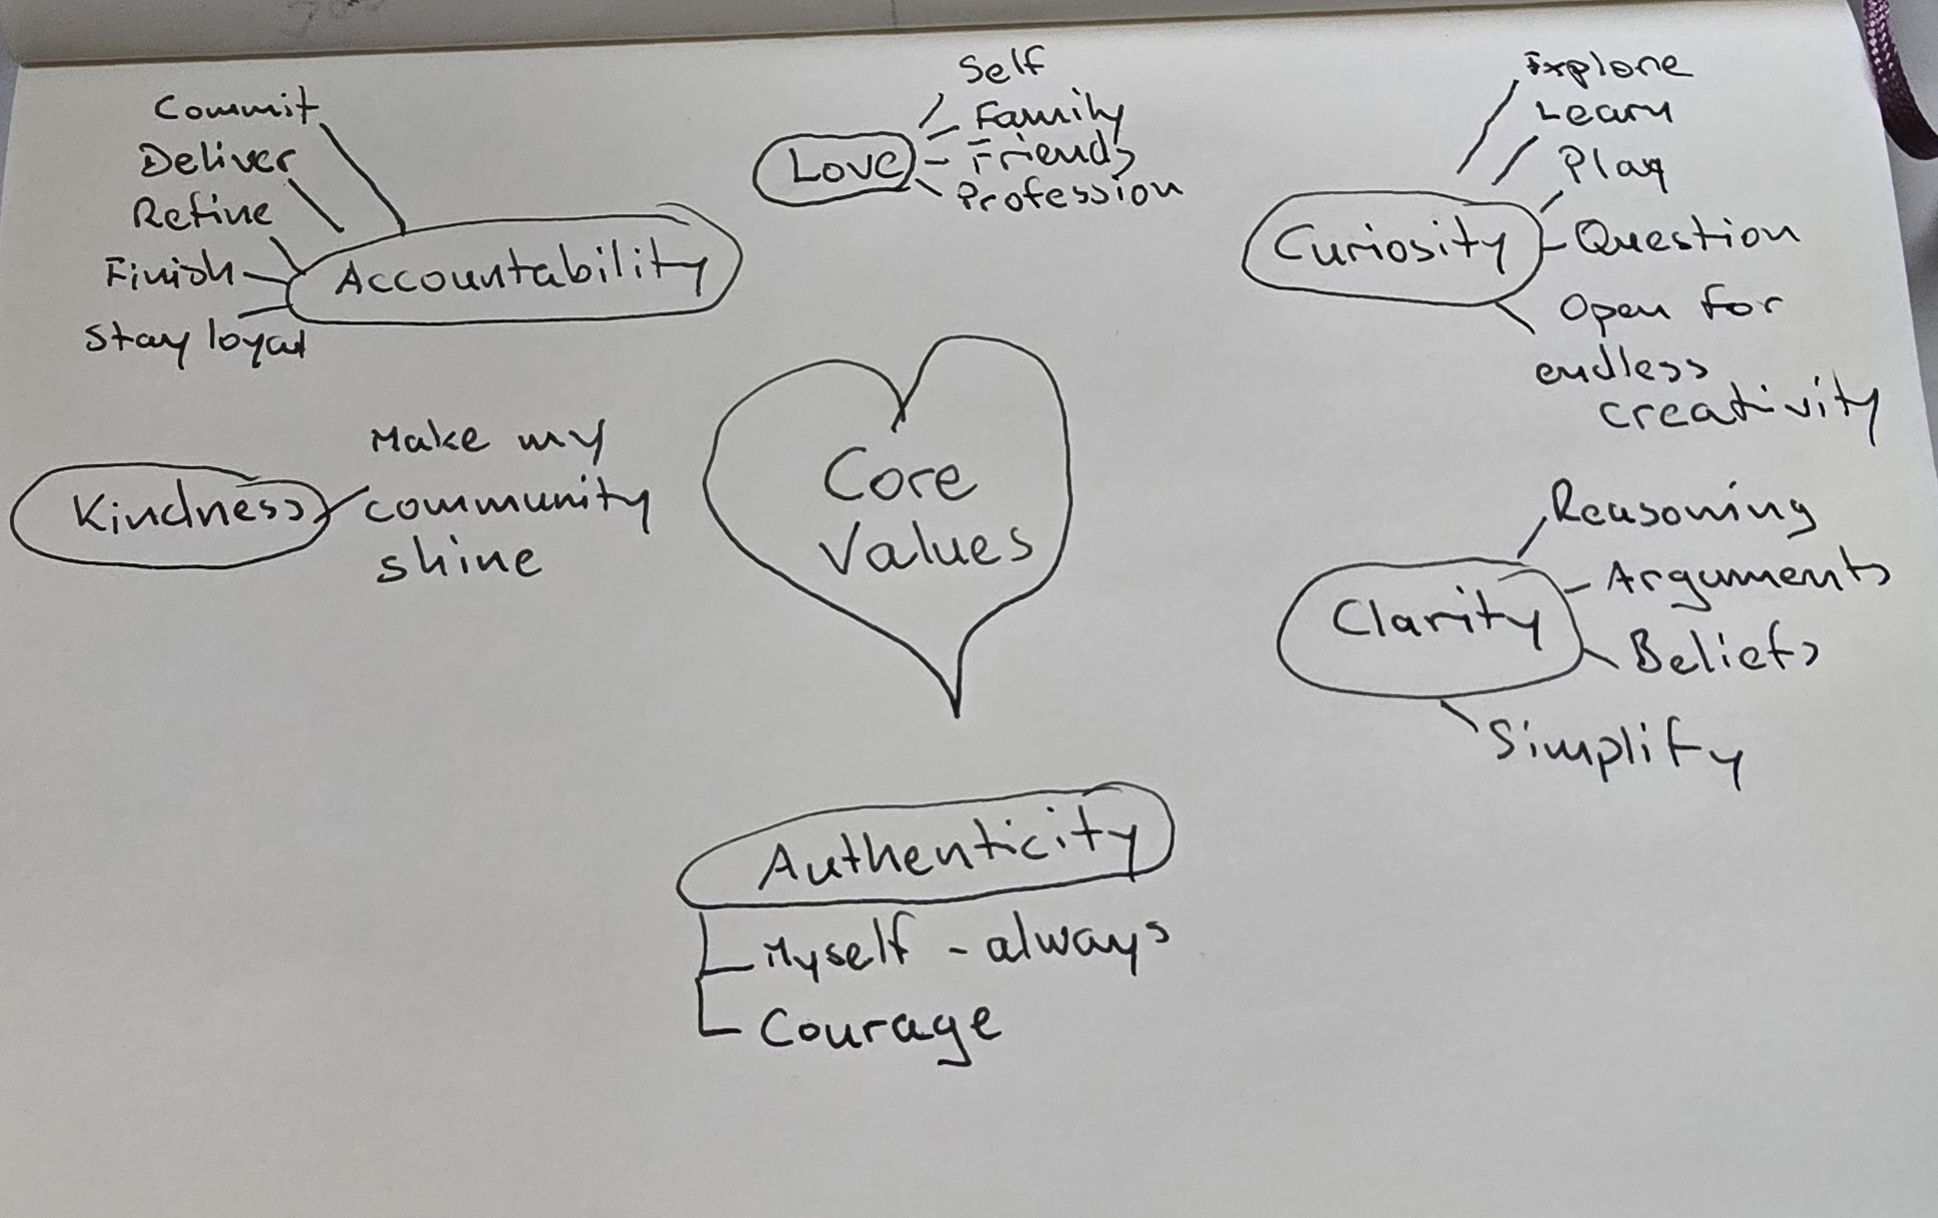 Commit
Deliver
Refine
Finish
Stay loyal
Accountability
Love
Self
Family
Friends
Profession
Curiosity
Explore
Learn
Play
Question
Open for
endless
creativity
Kindness
Make my
community
shine
Core
Values
Clarity
Reasoning
Arguments
Beliefs
Simplify
Authenticity
Myself - always
Courage